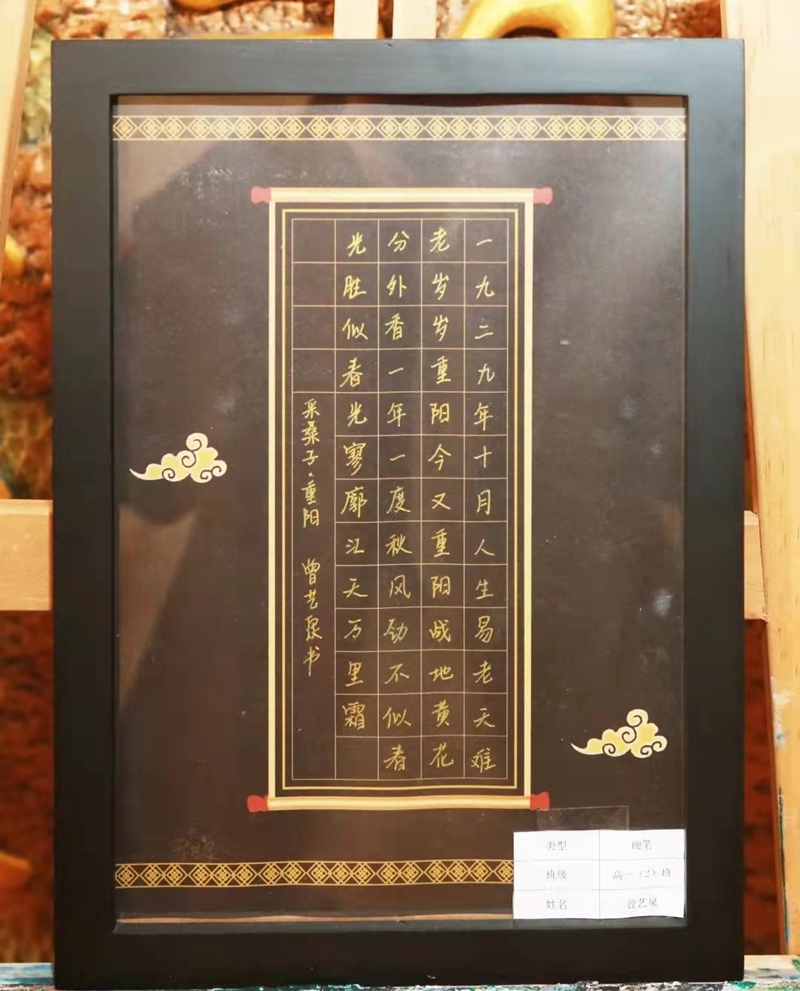 一九二九年十月人生易老天难
老岁岁重阳今又重阳战地黄花
分外香一年一度秋风劲不似春
光胜似春光寥廓江天万里霜
采桑子·重阳 曾艺泉书
类型 硬笔
班级 高一（2）班
姓名 曾艺泉